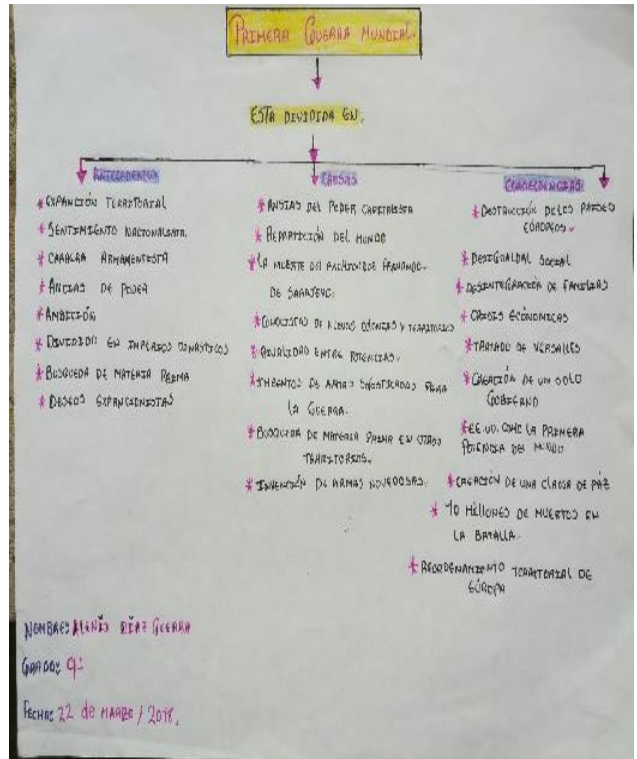 PRIMERA GUERRA MUNDIAL.
ESTA DIVIDIDA EN.
ANTECEDENTES
* EXPANCIÓN TERRITORIAL
* SENTIMIENTO NACIONALISTA.
* CARRERA ARMAMENTISTA
* ANCIAS DE PODER
* AMBICIÓN
* DIVIDIDO EN IMPERIOS
* BUSQUEDA DE MATERIA PRIMA
* DESEOS EXPANCIONISTAS
CAUSAS
* ANSIAS DEL PODER CAPITALISTA
* REPARTICIÓN DEL MUNDO
* LA MUERTE DEL ARCHIDUQUE FERNANDO
DE SARAJEVO.
* CONQUISTAS DE NUEVAS COLONIAS Y TERRITORIOS
* RIVALIDAD ENTRE POTENCIAS.
* INVENTOS DE ARMAS SOFISTICADAS PARA
LA GUERRA.
* BUSQUEDA DE MATERIA PRIMA EN OTROS
TERRITORIOS.
* INVENCIÓN DE ARMAS NOVEDOSAS.
CONSECUENCIAS
* DESTRUCCIÓN DE LOS PAISES
EUROPEOS.
* DESIGUALDAD SOCIAL
* DESINTEGRACIÓN DE FAMILIAS
* CRISIS ECONÓMICAS
* TRATADO DE VERSALLES
* CREACIÓN DE UN SOLO
GOBIERNO
* EE.UU. COMO LA PRIMERA
POTENCIA DEL MUNDO
* CREACIÓN DE UNA DE PÁZ
* 10 MILLONES DE MUERTOS EN
LA BATALLA.
* REORDENAMIENTO TERRITORIAL DE
EUROPA
NOMBRE: DÍAZ GUERRA
GRADO: 9°
FECHA: 22 de MARZO / 2018.